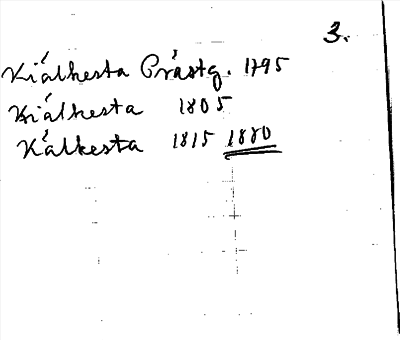 3.
Kiálkesta Prástg. 1795
Kiálkesta 1805
Kálkesta 1815 1880